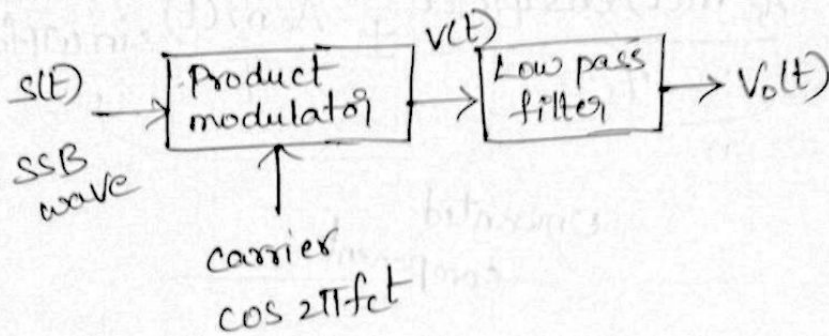 S(t)
SSB
wave
Product
modulator
V(t)
Low pass
filter
Vo(t)
carrier
cos 2πfct